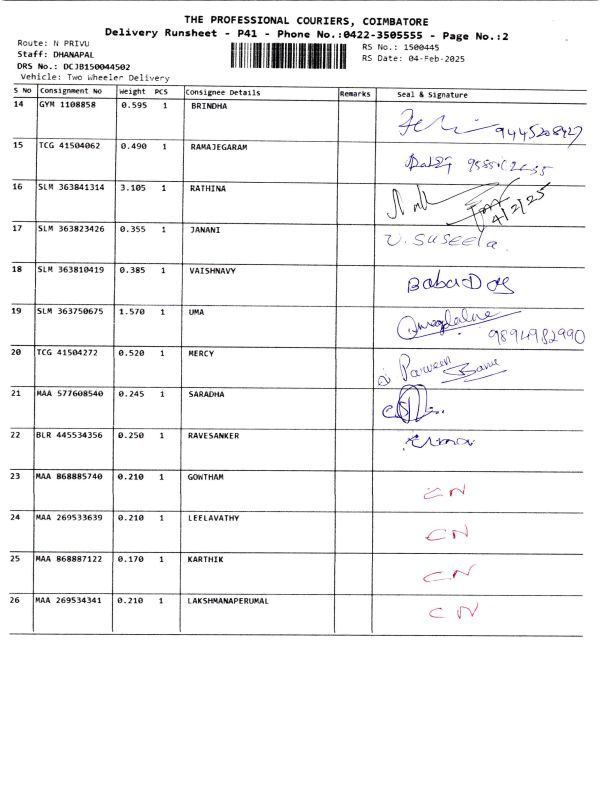 THE PROFESSIONAL COURIERS, COIMBATORE
Delivery Runsheet - P41 - Phone No.:0422-3505555 - Page No.:2
Route: N PRIVU
Staff: DHANAPAL
DRS No.: DCJB150044502
Vehicle: Two Wheeler Delivery
RS No.: 1500445
RS Date: 04-Feb-2025
S No Consignment No Weight PCS Consignee Details Remarks Seal & Signature
14 GYM 1108858 0.595 1 BRINDHA 9445208427
15 TCG 41504062 0.490 1 RAMAJEGARAM
16 SLM 363841314 3.105 1 RATHINA 4/2/25
17 SLM 363823426 0.355 1 JANANI U. Suseela.
18 SLM 363810419 0.385 1 VAISHNAVY
19 SLM 363750675 1.570 1 UMA 9894982990
20 TCG 41504272 0.520 1 MERCY Parveen Banu
21 MAA 577608540 0.245 1 SARADHA
22 BLR 445534356 0.250 1 RAVESANKER
23 MAA 868885740 0.210 1 GOWTHAM CN
24 MAA 269533639 0.210 1 LEELAVATHY CN
25 MAA 868887122 0.170 1 KARTHIK CN
26 MAA 269534341 0.210 1 LAKSHMANAPERUMAL CN